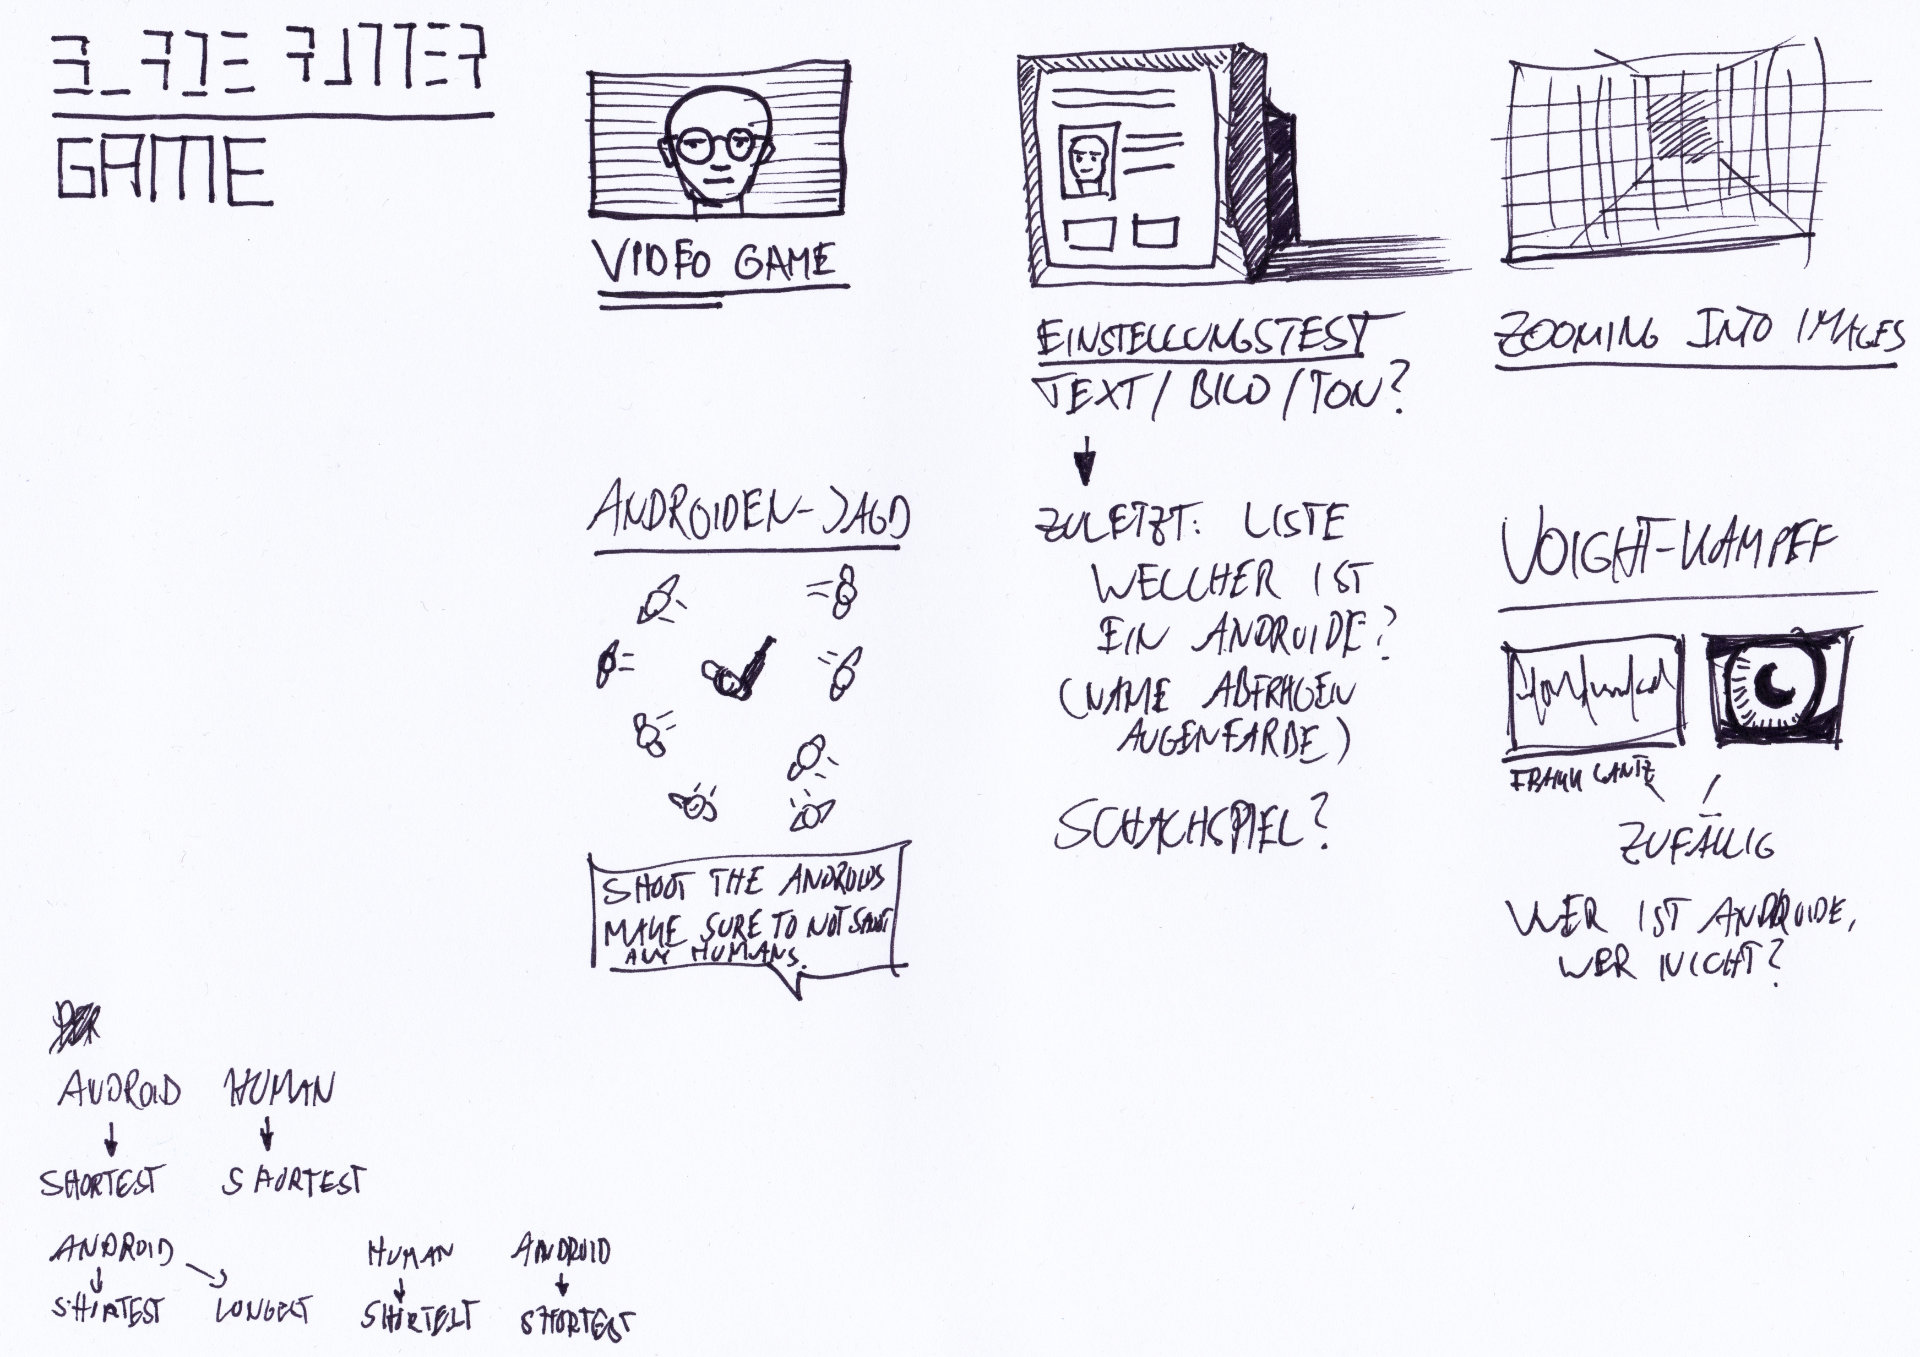 BLADE RUNNER
GAME
VIDEO GAME
EINSTELLUNGSTEST
TEXT / BILD / TON?
ZULETZT: LISTE
WELCHER IST
EIN ANDROIDE?
(NAME ABFRAGEN
AUGENFARBE)
SCHACHSPIEL?
ZOOMING INTO IMAGES
ANDROIDEN-JAGD
SHOOT THE ANDROIDS
MAKE SURE TO NOT SHOOT
ANY HUMANS.
VOIGHT-KAMPFF
FRANK LANTZ
ZUFÄLLIG
WER IST ANDROIDE,
WER NICHT?
DER
ANDROID HUMAN
SHORTEST SHORTEST
ANDROID HUMAN ANDROID
SHORTEST LONGEST SHORTEST SHORTEST